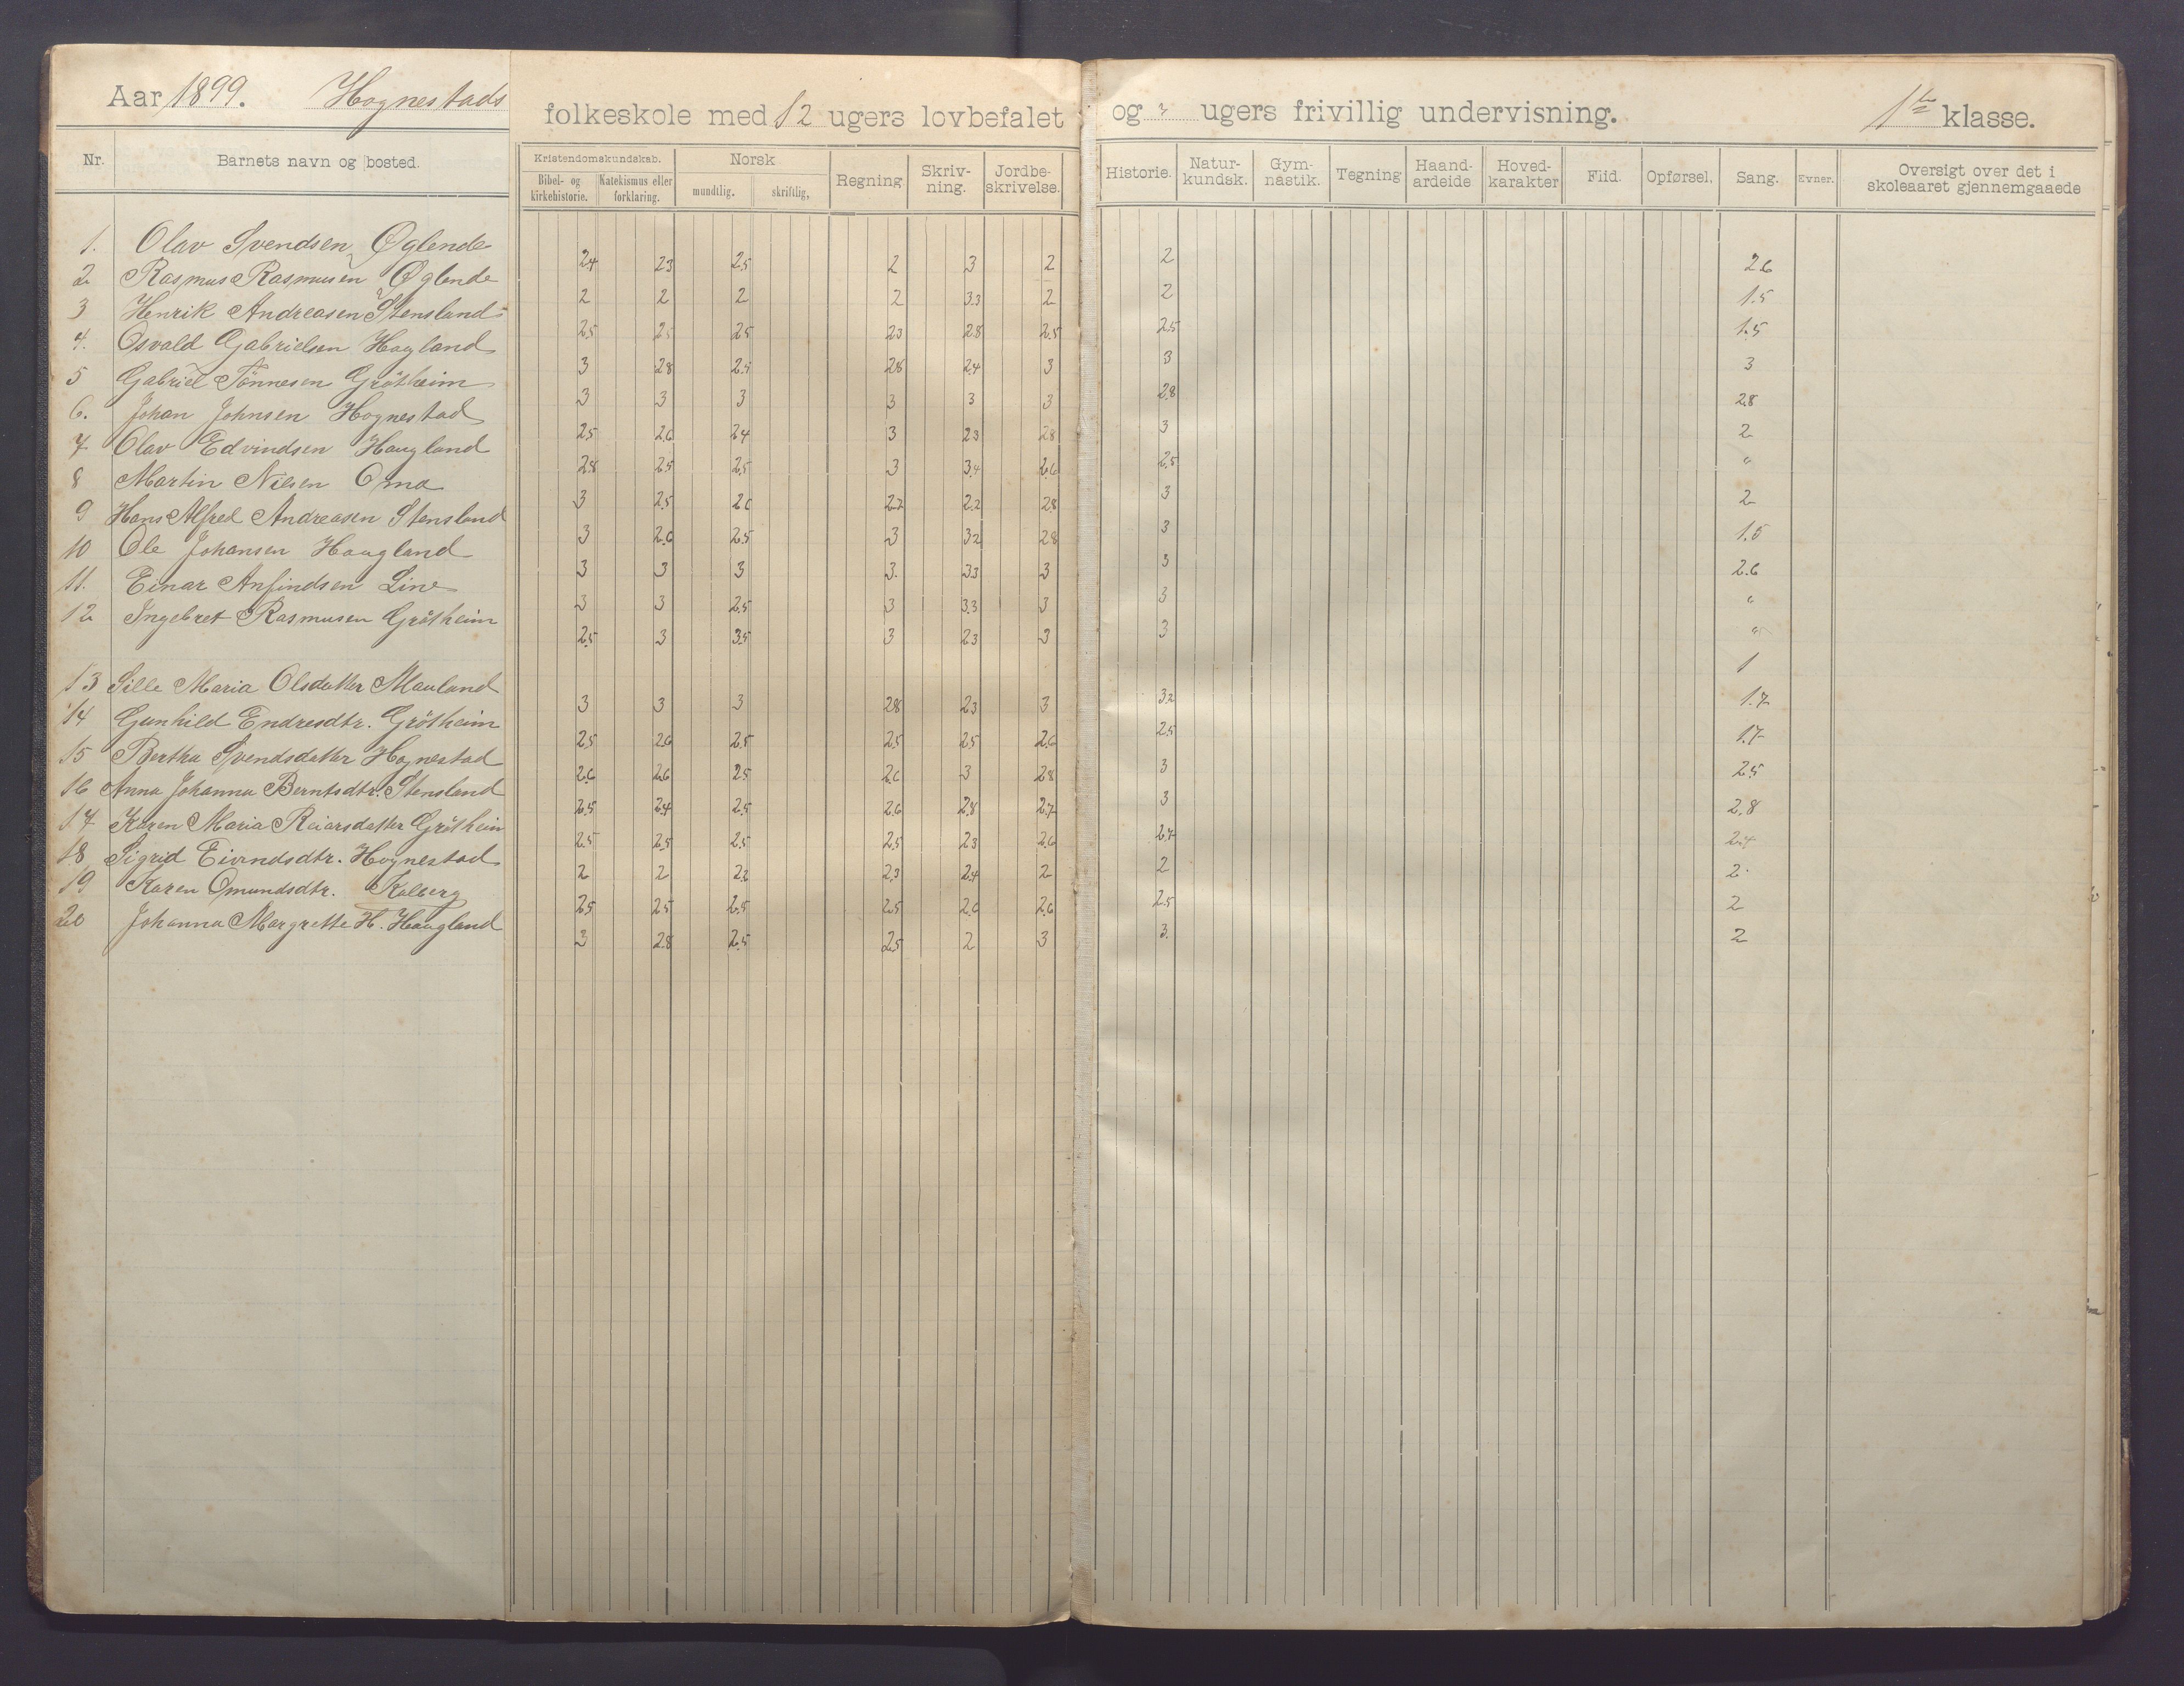 Aar 1899. Hognestads folkeskole med 12 ugers lovbefalet og 3 ugers frivillig undervisning. 1ste klasse.
Nr. Barnets navn og bosted. Kristendomskundskab. Norsk Regning Skriv-ning. Jordbe-skrivelse. Historie. Natur-kundsk. Gym-nastik. Tegning Haand-arbeide Hoved-karakter Flid. Opførsel. Sang. Evner. Oversigt over det i skoleaaret gjennemgaaede
Bibel- og kirkehistorie. Katekismus eller forklaring. mundtlig. skriftlig,
1. Olav Svendsen Øglende 2.4 2.3 2.5 2 3 2 2 2.6
2 Rasmus Rasmusen Øglende 2 2 2 2 3.3 2 2 1.5
3 Henrik Andreasen Stensland 2.5 2.5 2.5 2.3 2.8 2.5 2.5 1.5
4. Osvald Gabrielsen Haagland 3 2.8 2.5 2.8 2.4 3 3 3
5 Gabriel Tönnesen Grötheim 3 3 3 3 3 3 2.8 2.8
6. Johan Johnsen Hognestad 2.5 2.6 2.4 3 2.3 2.8 3 2
7 Olav Edvindsen Haugland 2.8 2.5 2.5 3 3.4 2.6 2.5 "
8 Martin Nilsen Oma 3 2.5 2.6 2.7 2.2 2.8 3 2
9 Hans Alfred Andreasen Stensland 3 2.6 2.5 3 3.2 2.8 3 1.5
10 Ole Johansen Haugland 3 3 3 3. 3.3 3 3 2.6
11. Einar Anfindsen Line 3 3 2.5 3 3.3 3 3 "
12 Ingebret Rasmusen Grötheim 2.5 3 3.5 3 2.3 3 3 "
1
13 Sille Maria Olsdatter Mauland 3 3 3 2.8 2.3 3 3.2 1.7
14 Gunhild Endresdtr. Grötheim 2.5 2.6 2.5 2.5 2.5 2.6 2.5 1.7
15 Bertha Svendsdatter Hognestad 2.6 2.6 2.5 2.6 3 2.8 3 2.5
16 Anna Johanna Berntsdtr. Stensland 2.5 2.4 2.5 2.6 2.8 2.7 3 2.8
17 Karen Maria Reiarsdatter Grötheim 2.5 2.5 2.5 2.5 2.3 2.6 2.7 2.4
18 Sigrid Eivindsdtr. Hognestad 2 2 2.2 2.3 2.4 2 2 2.
19 Karen Omundsdtr. Kalberg 2.5 2.5 2.5 2.5 2.6 2.6 2.5 2
20 Johanna Margrette H. Haugland 3 2.8 2.5 2.5 2 3 3. 2